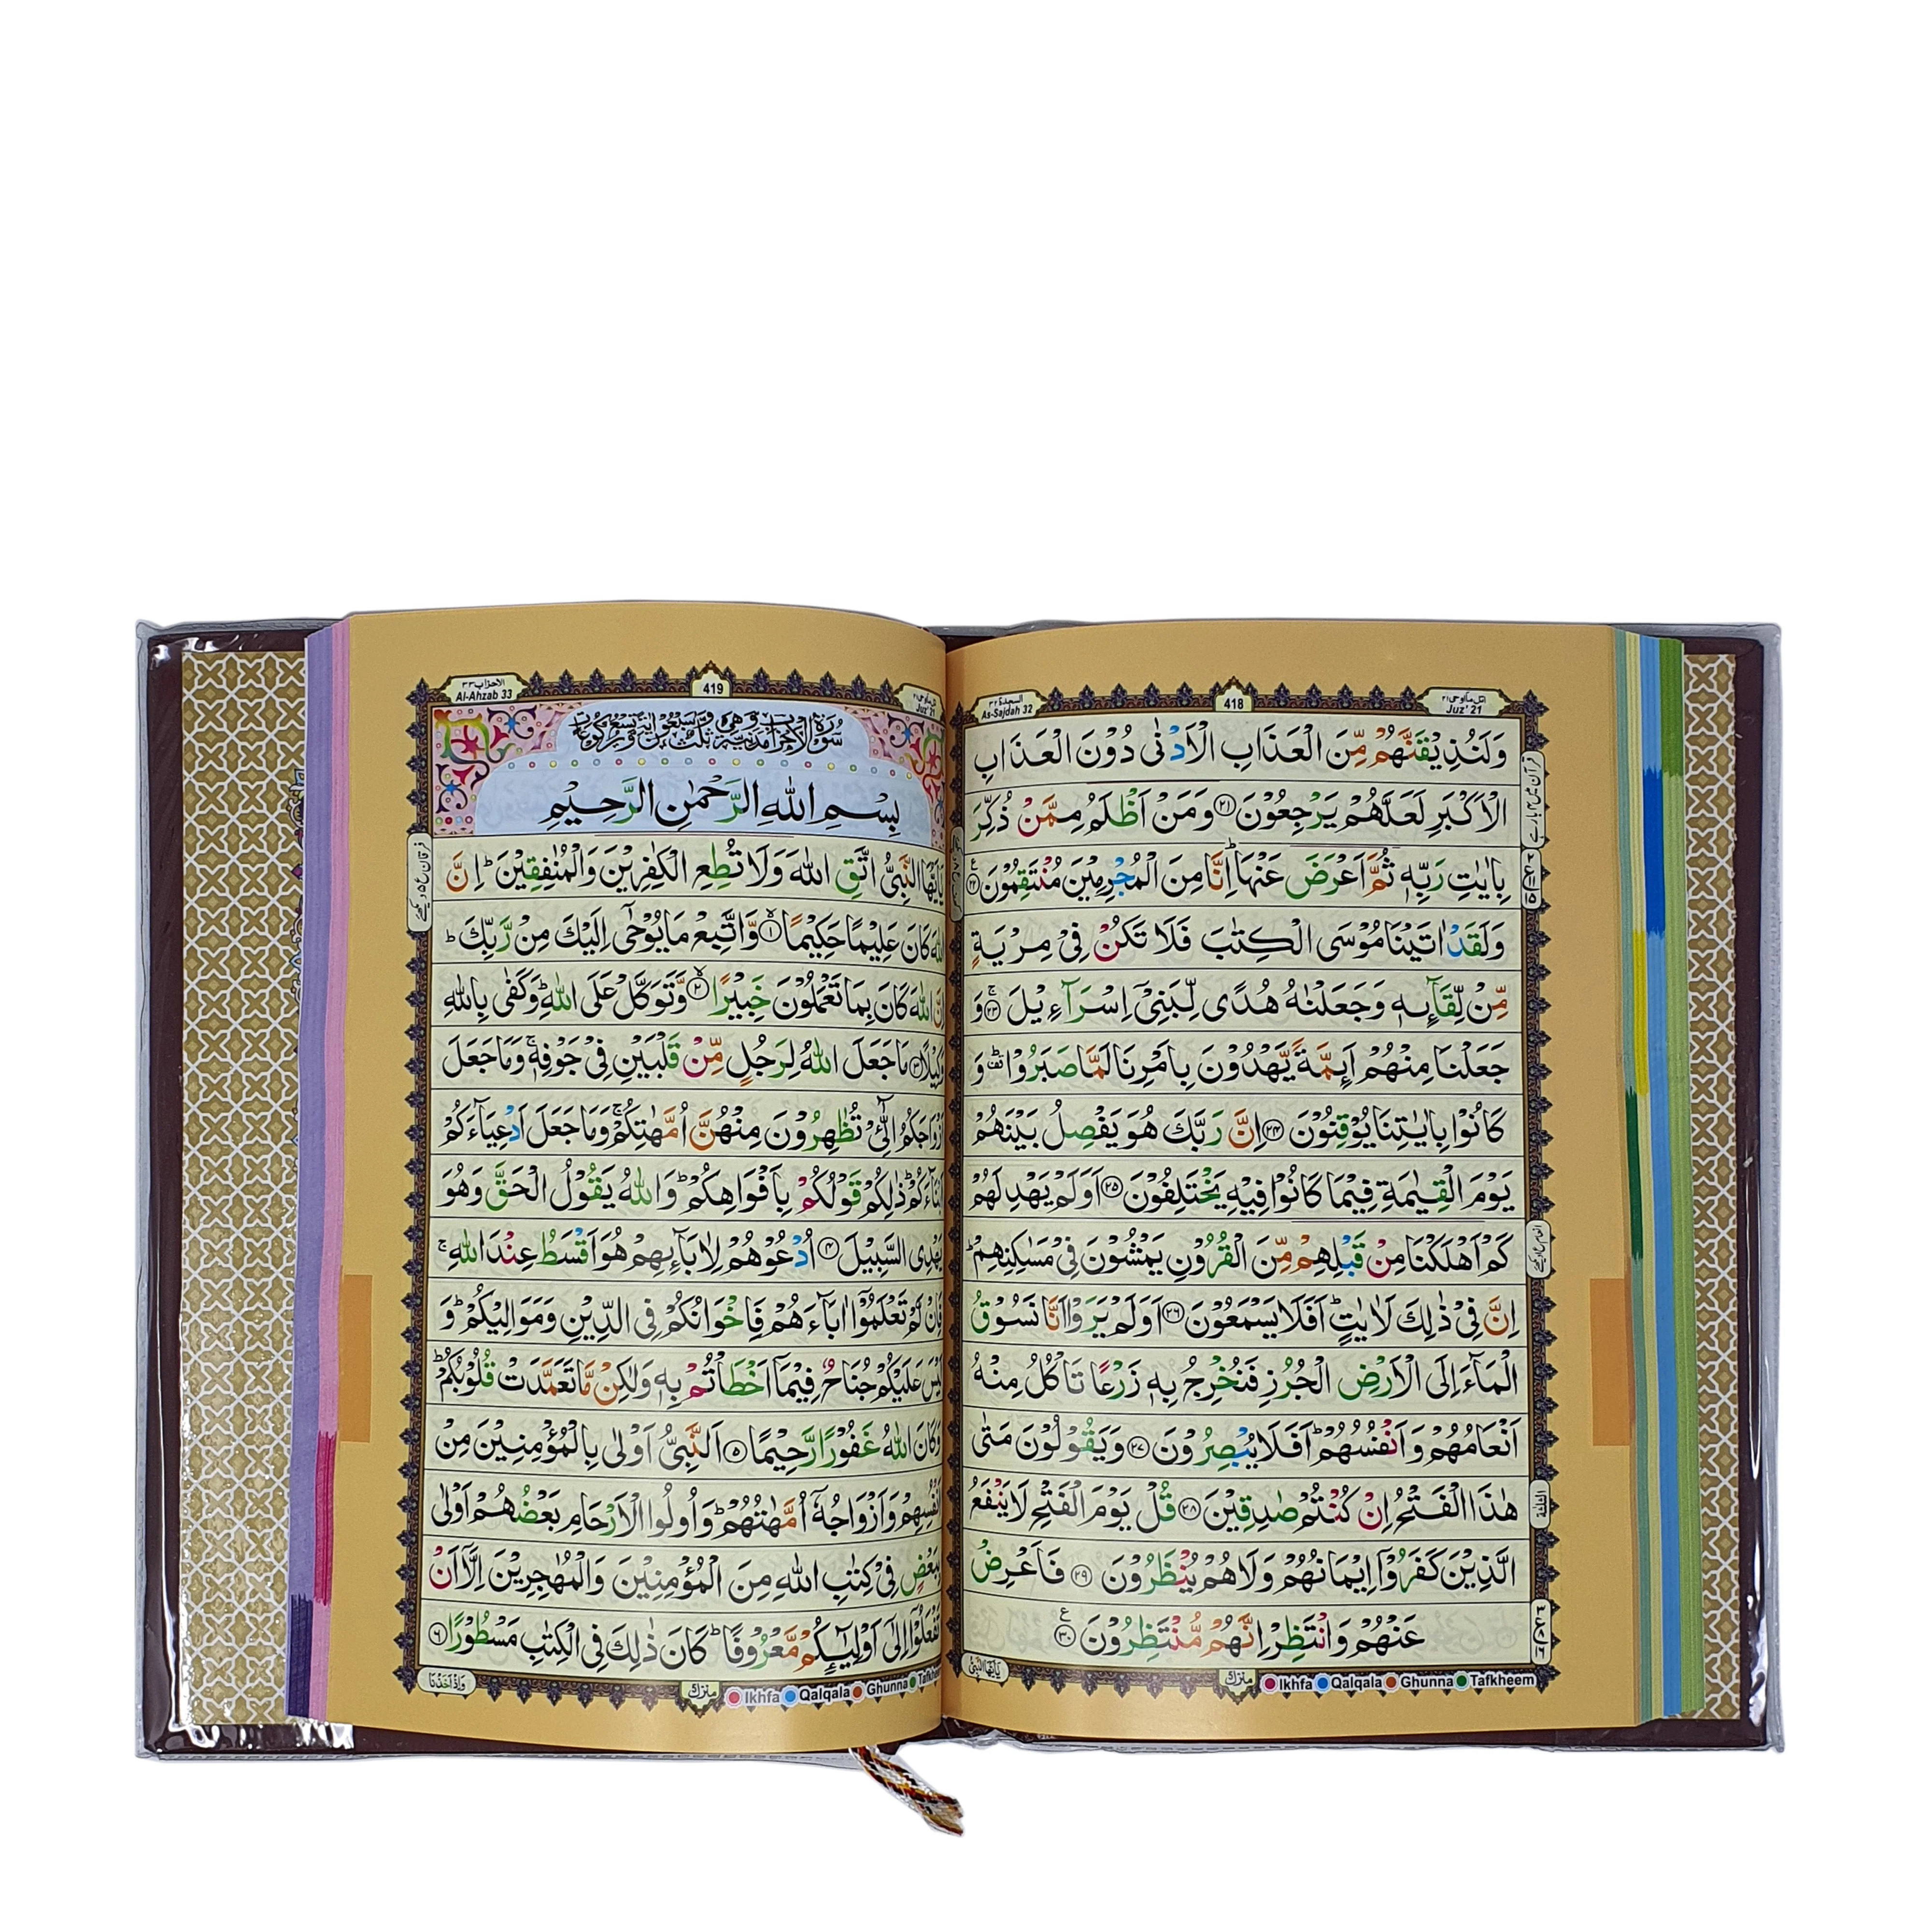 السجدة ٣٢
As-Sajdah 32
418
اتل ما اوحی ٢١
Juz' 21
وَلَنُذِيْقَنَّهُمْ مِّنَ الْعَذَابِ الْاَدْنٰى دُوْنَ الْعَذَابِ
الْاَكْبَرِ لَعَلَّهُمْ يَرْجِعُوْنَ ﴿٢١﴾ وَمَنْ اَظْلَمُ مِمَّنْ ذُكِّرَ
بِاٰيٰتِ رَبِّهٖ ثُمَّ اَعْرَضَ عَنْهَا ؕ اِنَّا مِنَ الْمُجْرِمِيْنَ مُنْتَقِمُوْنَ ﴿٢٢﴾
وَلَقَدْ اٰتَيْنَا مُوْسَى الْكِتٰبَ فَلَا تَكُنْ فِيْ مِرْيَةٍ
مِّنْ لِّقَآئِهٖ وَجَعَلْنٰهُ هُدًى لِّبَنِيْٓ اِسْرَآءِيْلَ ﴿٢٣﴾ وَ
جَعَلْنَا مِنْهُمْ اَئِمَّةً يَّهْدُوْنَ بِاَمْرِنَا لَمَّا صَبَرُوْا وَ
كَانُوْا بِاٰيٰتِنَا يُوْقِنُوْنَ ﴿٢٤﴾ اِنَّ رَبَّكَ هُوَ يَفْصِلُ بَيْنَهُمْ
يَوْمَ الْقِيٰمَةِ فِيْمَا كَانُوْا فِيْهِ يَخْتَلِفُوْنَ ﴿٢٥﴾ اَوَلَمْ يَهْدِ لَهُمْ
كَمْ اَهْلَكْنَا مِنْ قَبْلِهِمْ مِّنَ الْقُرُوْنِ يَمْشُوْنَ فِيْ مَسٰكِنِهِمْ ؕ
اِنَّ فِيْ ذٰلِكَ لَاٰيٰتٍ ؕ اَفَلَا يَسْمَعُوْنَ ﴿٢٦﴾ اَوَلَمْ يَرَوْا اَنَّا نَسُوْقُ
الْمَآءَ اِلَى الْاَرْضِ الْجُرُزِ فَنُخْرِجُ بِهٖ زَرْعًا تَاْكُلُ مِنْهُ
اَنْعَامُهُمْ وَاَنْفُسُهُمْ ؕ اَفَلَا يُبْصِرُوْنَ ﴿٢٧﴾ وَيَقُوْلُوْنَ مَتٰى
هٰذَا الْفَتْحُ اِنْ كُنْتُمْ صٰدِقِيْنَ ﴿٢٨﴾ قُلْ يَوْمَ الْفَتْحِ لَا يَنْفَعُ
الَّذِيْنَ كَفَرُوْٓا اِيْمَانُهُمْ وَلَا هُمْ يُنْظَرُوْنَ ﴿٢٩﴾ فَاَعْرِضْ
عَنْهُمْ وَانْتَظِرْ اِنَّهُمْ مُّنْتَظِرُوْنَ ﴿٣٠﴾
يٰٓاَيُّهَا النَّبِيُّ
منزل
Ikhfa Qalqala Ghunna Tafkheem
الاحزاب ٣٣
Al-Ahzab 33
419
Juz' 21
سُوْرَةُ الْاَحْزَابِ مَدَنِيَّةٌ وَّهِيَ ثَلٰثٌ وَّسَبْعُوْنَ اٰيَةً وَّتِسْعُ رُكُوْعَاتٍ
بِسْمِ اللّٰهِ الرَّحْمٰنِ الرَّحِيْمِ
يٰٓاَيُّهَا النَّبِيُّ اتَّقِ اللّٰهَ وَلَا تُطِعِ الْكٰفِرِيْنَ وَالْمُنٰفِقِيْنَ ؕ اِنَّ
اللّٰهَ كَانَ عَلِيْمًا حَكِيْمًا ﴿١﴾ وَّاتَّبِعْ مَا يُوْحٰٓى اِلَيْكَ مِنْ رَّبِّكَ ؕ
اِنَّ اللّٰهَ كَانَ بِمَا تَعْمَلُوْنَ خَبِيْرًا ﴿٢﴾ وَّتَوَكَّلْ عَلَى اللّٰهِ ؕ وَكَفٰى بِاللّٰهِ
وَكِيْلًا ﴿٣﴾ مَا جَعَلَ اللّٰهُ لِرَجُلٍ مِّنْ قَلْبَيْنِ فِيْ جَوْفِهٖ ۚ وَمَا جَعَلَ
اَزْوَاجَكُمُ الّٰٓـِٔيْ تُظٰهِرُوْنَ مِنْهُنَّ اُمَّهٰتِكُمْ ۚ وَمَا جَعَلَ اَدْعِيَآءَكُمْ
اَبْنَآءَكُمْ ؕ ذٰلِكُمْ قَوْلُكُمْ بِاَفْوَاهِكُمْ ؕ وَاللّٰهُ يَقُوْلُ الْحَقَّ وَهُوَ
يَهْدِى السَّبِيْلَ ﴿٤﴾ اُدْعُوْهُمْ لِاٰبَآئِهِمْ هُوَ اَقْسَطُ عِنْدَ اللّٰهِ ۚ
فَاِنْ لَّمْ تَعْلَمُوْٓا اٰبَآءَهُمْ فَاِخْوَانُكُمْ فِى الدِّيْنِ وَمَوَالِيْكُمْ ؕ وَ
لَيْسَ عَلَيْكُمْ جُنَاحٌ فِيْمَآ اَخْطَاْتُمْ بِهٖ وَلٰكِنْ مَّا تَعَمَّدَتْ قُلُوْبُكُمْ ؕ
وَكَانَ اللّٰهُ غَفُوْرًا رَّحِيْمًا ﴿٥﴾ اَلنَّبِيُّ اَوْلٰى بِالْمُؤْمِنِيْنَ مِنْ
اَنْفُسِهِمْ وَاَزْوَاجُهٗٓ اُمَّهٰتُهُمْ ؕ وَاُولُوا الْاَرْحَامِ بَعْضُهُمْ اَوْلٰى
بِبَعْضٍ فِيْ كِتٰبِ اللّٰهِ مِنَ الْمُؤْمِنِيْنَ وَالْمُهٰجِرِيْنَ اِلَّآ اَنْ
تَفْعَلُوْٓا اِلٰٓى اَوْلِيٰٓئِكُمْ مَّعْرُوْفًا ؕ كَانَ ذٰلِكَ فِى الْكِتٰبِ مَسْطُوْرًا ﴿٦﴾
وَاِذْ اَخَذْنَا
منزل
Ikhfa Qalqala Ghunna Tafkheem